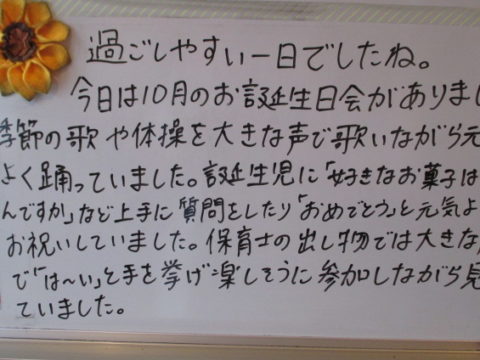 過ごしやすい一日でしたね。
今日は10月のお誕生日会がありまし
季節の歌や体操を大きな声で歌いながら元
よく踊っていました。誕生児に「好きなお菓子は
んですか」など上手に質問をしたり「おめでとう」と元気よ
お祝いしていました。保育士の出し物では大きな
で「は〜い」と手を挙げ楽しそうに参加しながら見
ていました。